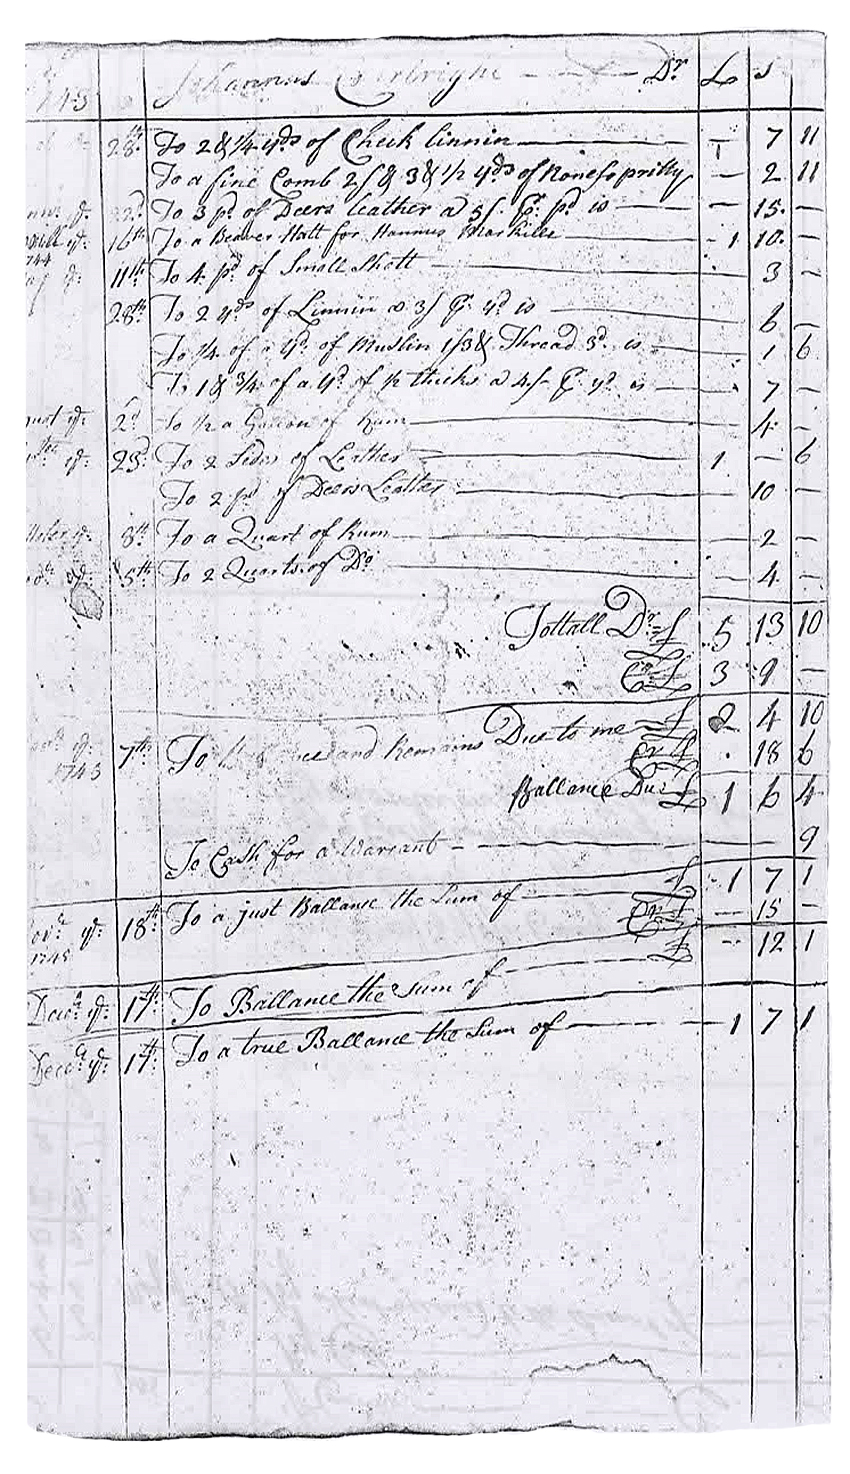 1743 Johannus Dr £ s
28th To 2 & 1/4 yds of Check linnin — 7 11
To a fine Comb 2/ & 3 & 1/2 yds of — 2 11
22d To 3 pd of Deers leather a 5/ Pr pd is — 15 —
ye 16th To a Beaver Hatt for Hannus 1 10 —
1744
ye 11th To 4 pd of Small Shott — 3 —
28th To 2 yds of Linnin a 3/ Pr yd is 6 —
To 3/4 of a yd of Muslin 1/3 & Thread 3d is 1 6
To 1 & 3/4 of a yd of 1/2 thicks a 4/- Pr yd is 7 —
ye 2d To 1/2 a Gallon of Rum 4 —
ye 23d To 2 Sides of Leather 1 — 6
To 2 pd of Deers Leather 10 —
ye 8th To a Quart of Rum — 2 —
ye 5th To 2 Quarts of Do — 4 —
Tottall Dr £ 5 13 10
Cr £ 3 9 —
£ 2 4 10
ye 7th To and Remains Due to me
1743 Cr £ 18 6
Ballance Due £ 1 6 4
To Cash for a Warrant 9
£ 1 7 1
ye 18th To a just Ballance the Sum of
1745 Cr £ — 15 —
£ — 12 1
Decr ye 17th To Ballance the Sum of
Decr ye 17th To a true Ballance the Sum of 1 7 1